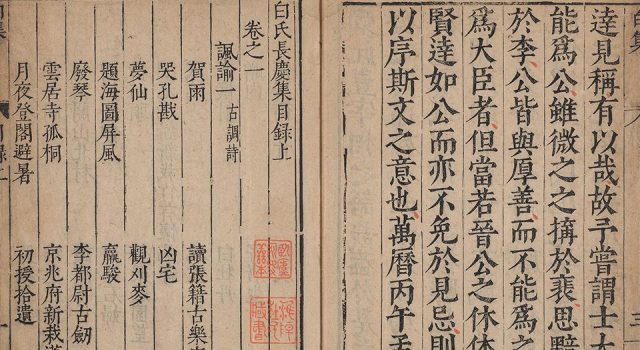 達見稱有以哉故予嘗謂士大
能爲公雖微之之搆於裴思
於李公皆與厚善而不能爲之
爲大臣者但當若晉公之休休
賢達如公而亦不免於見忌則
以序斯文之意也萬曆丙午
白氏長慶集目録上
卷之一
諷諭一 古調詩
賀雨 讀張籍古樂
哭孔戡 凶宅
夢仙 觀刈麥
題海圖屏風 羸駿
廢琴 李都尉古劒
雲居寺孤桐 京兆府新栽
月夜登閣避暑 初授拾遺